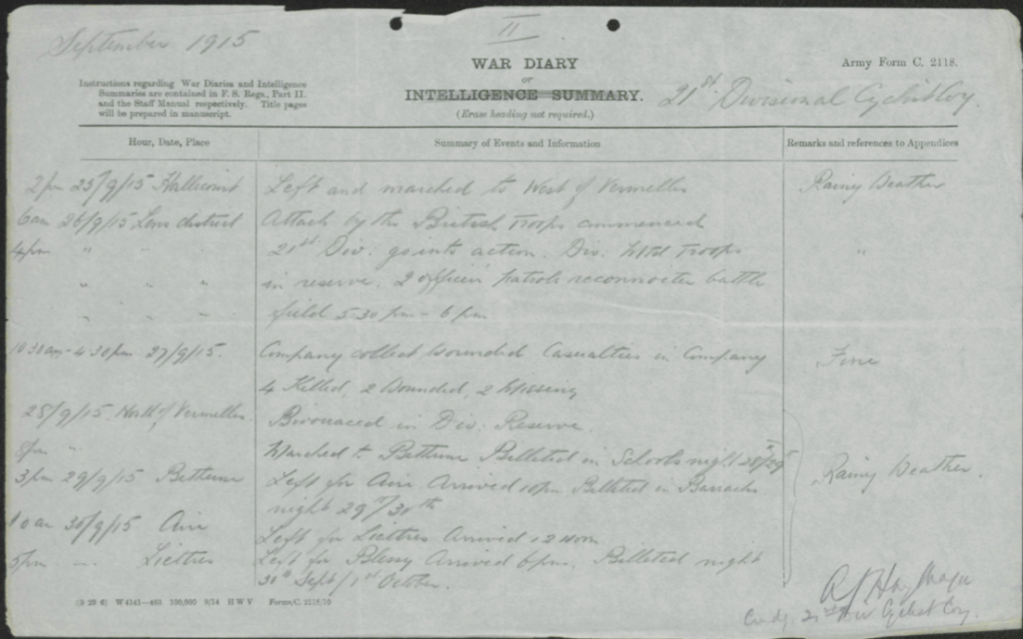 September 1915
II
WAR DIARY
or
INTELLIGENCE SUMMARY.
(Erase heading not required.)
Army Form C. 2118.
21st Divisional Cyclist Coy.
Instructions regarding War Diaries and Intelligence
Summaries are contained in F. S. Regs., Part II.
and the Staff Manual respectively. Title pages
will be prepared in manuscript.
Hour, Date, Place
Summary of Events and Information
Remarks and references to Appendices
2 pm 25/9/15 Left and marched to West of Vermelles Rainy Weather
6 am 26/9/15 Loos district Attack by the British Troops commenced
4 pm " " 21st Div: go into action. Div: Mtd Troops "
" " " in reserve. 2 officers patrols reconnoiter battle
" " " field 5-30 pm - 6 pm
10 30 am - 4-30 pm 27/9/15. Company collect wounded Casualties in Company Fine
4 Killed, 2 Wounded, 2 Missing
28/9/15 of Vermelles Bivouaced in Div: Reserve.
pm " Marched to Bethune Billeted in Schools night 28/29th
3 pm 29/9/15 Bethune Left for Aire Arrived 10 pm Billeted in Barracks Rainy Weather.
night 29th/30th
10 am 30/9/15 Aire Left for Liettres Arrived 12 noon
5 pm " Liettres Left for Blessy Arrived 6 pm. Billeted night
30th Sept/1st October.
Major
Cmdg. 21st Div Cyclist Coy.
(9 29 6) W 4141—463 100,000 9/14 H W V Forms/C. 2118/10